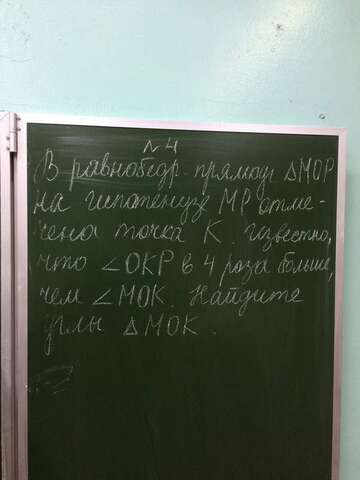 № 4
В равнобедр. прямоуг ΔMOP
на гипотенузе MP отме-
чена точка K. известно,
что ∠OKP в 4 раза больше,
чем ∠MOK. Найдите
углы ΔMOK.